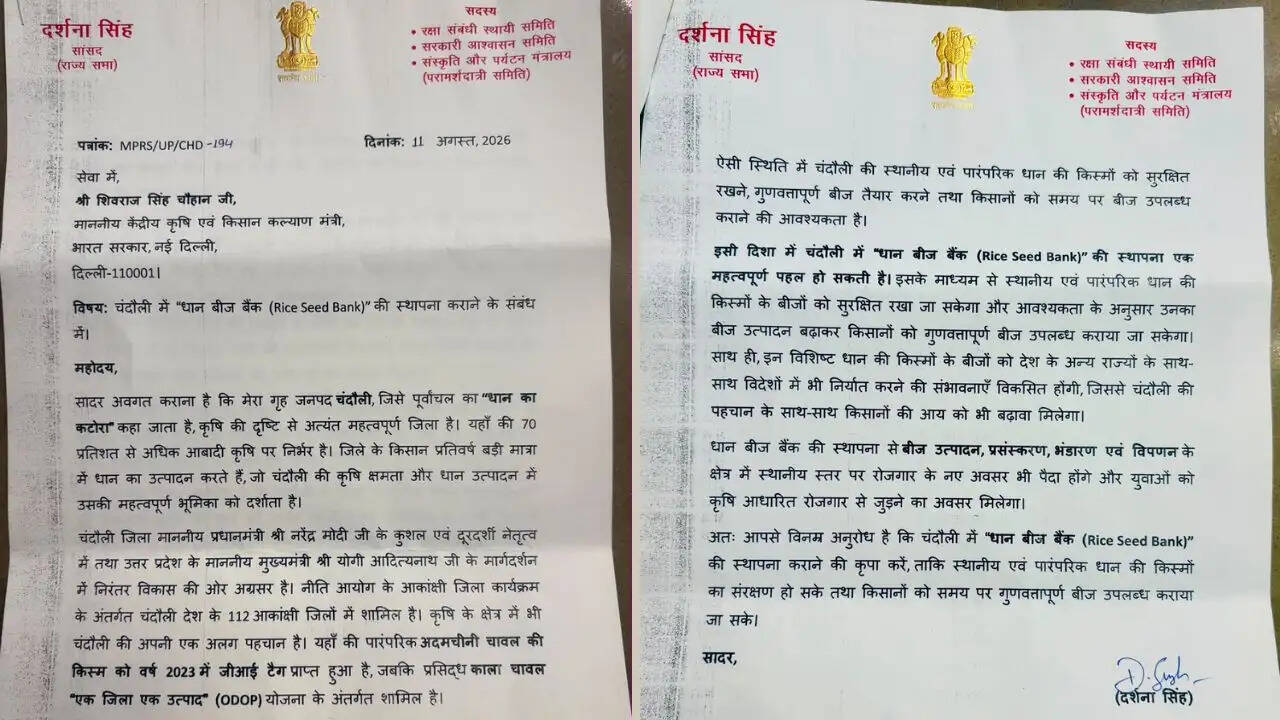 दर्शना सिंह
सांसद
(राज्य सभा)
सदस्य
• रक्षा संबंधी स्थायी समिति
• सरकारी आश्वासन समिति
• संस्कृति और पर्यटन मंत्रालय
(परामर्शदात्री समिति)
पत्रांक: MPRS/UP/CHD-194
दिनांक: 11 अगस्त, 2026
सेवा में,
श्री शिवराज सिंह चौहान जी,
माननीय केंद्रीय कृषि एवं किसान कल्याण मंत्री,
भारत सरकार, नई दिल्ली,
दिल्ली-110001।
विषय: चंदौली में "धान बीज बैंक (Rice Seed Bank)" की स्थापना कराने के संबंध
में।
महोदय,
सादर अवगत कराना है कि मेरा गृह जनपद चंदौली, जिसे पूर्वांचल का "धान का
कटोरा" कहा जाता है, कृषि की दृष्टि से अत्यंत महत्वपूर्ण जिला है। यहाँ की 70
प्रतिशत से अधिक आबादी कृषि पर निर्भर है। जिले के किसान प्रतिवर्ष बड़ी मात्रा
में धान का उत्पादन करते हैं, जो चंदौली की कृषि क्षमता और धान उत्पादन में
उसकी महत्वपूर्ण भूमिका को दर्शाता है।
चंदौली जिला माननीय प्रधानमंत्री श्री नरेंद्र मोदी जी के कुशल एवं दूरदर्शी नेतृत्व
में तथा उत्तर प्रदेश के माननीय मुख्यमंत्री श्री योगी आदित्यनाथ जी के मार्गदर्शन
में निरंतर विकास की ओर अग्रसर है। नीति आयोग के आकांक्षी जिला कार्यक्रम
के अंतर्गत चंदौली देश के 112 आकांक्षी जिलों में शामिल है। कृषि के क्षेत्र में भी
चंदौली की अपनी एक अलग पहचान है। यहाँ की पारंपरिक अदमचीनी चावल की
किस्म को वर्ष 2023 में जीआई टैग प्राप्त हुआ है, जबकि प्रसिद्ध काला चावल
"एक जिला एक उत्पाद" (ODOP) योजना के अंतर्गत शामिल है।
दर्शना सिंह
सांसद
(राज्य सभा)
सदस्य
• रक्षा संबंधी स्थायी समिति
• सरकारी आश्वासन समिति
• संस्कृति और पर्यटन मंत्रालय
(परामर्शदात्री समिति)
ऐसी स्थिति में चंदौली की स्थानीय एवं पारंपरिक धान की किस्मों को सुरक्षित
रखने, गुणवत्तापूर्ण बीज तैयार करने तथा किसानों को समय पर बीज उपलब्ध
कराने की आवश्यकता है।
इसी दिशा में चंदौली में "धान बीज बैंक (Rice Seed Bank)" की स्थापना एक
महत्वपूर्ण पहल हो सकती है। इसके माध्यम से स्थानीय एवं पारंपरिक धान की
किस्मों के बीजों को सुरक्षित रखा जा सकेगा और आवश्यकता के अनुसार उनका
बीज उत्पादन बढ़ाकर किसानों को गुणवत्तापूर्ण बीज उपलब्ध कराया जा सकेगा।
साथ ही, इन विशिष्ट धान की किस्मों के बीजों को देश के अन्य राज्यों के साथ-
साथ विदेशों में भी निर्यात करने की संभावनाएँ विकसित होंगी, जिससे चंदौली की
पहचान के साथ-साथ किसानों की आय को भी बढ़ावा मिलेगा।
धान बीज बैंक की स्थापना से बीज उत्पादन, प्रसंस्करण, भंडारण एवं विपणन के
क्षेत्र में स्थानीय स्तर पर रोजगार के नए अवसर भी पैदा होंगे और युवाओं को
कृषि आधारित रोजगार से जुड़ने का अवसर मिलेगा।
अतः आपसे विनम्र अनुरोध है कि चंदौली में "धान बीज बैंक (Rice Seed Bank)"
की स्थापना कराने की कृपा करें, ताकि स्थानीय एवं पारंपरिक धान की किस्मों
का संरक्षण हो सके तथा किसानों को समय पर गुणवत्तापूर्ण बीज उपलब्ध कराया
जा सके।
सादर,
D. Singh
(दर्शना सिंह)